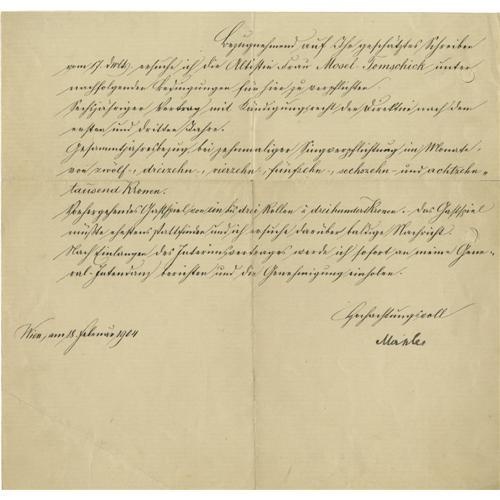 Bezugnehmend auf Ihr geschätztes Schreiben
vom 17. dMts. ersuche ich die Altistin Frau Mosel-Tomschick unter
nachfolgenden Bedingungen für hier zu verpflichten.
Sechsjähriger Vertrag mit Kündigungsrecht der Direktion nach dem
ersten und dritten Jahre.
Gesammtjahresbezug bei zehnmaliger Singverpflichtung im Monate
von zwölf-, dreizehn-, vierzehn-, fünfzehn-, sechzehn- und achtzehn-
tausend Kronen.
Vorhergehendes Gastspiel von ein bis drei Rollen à dreihundert Kronen. Das Gastspiel
müßte ehestens stattfinden und ich ersuche darüber baldige Nachricht.
Nach Einlangen des Interimsvertrages werde ich sofort an meine Gene-
ral-Intendanz berichten und die Genehmigung einholen.
Hochachtungsvoll
Mahler
Wien, am 18. Februar 1904